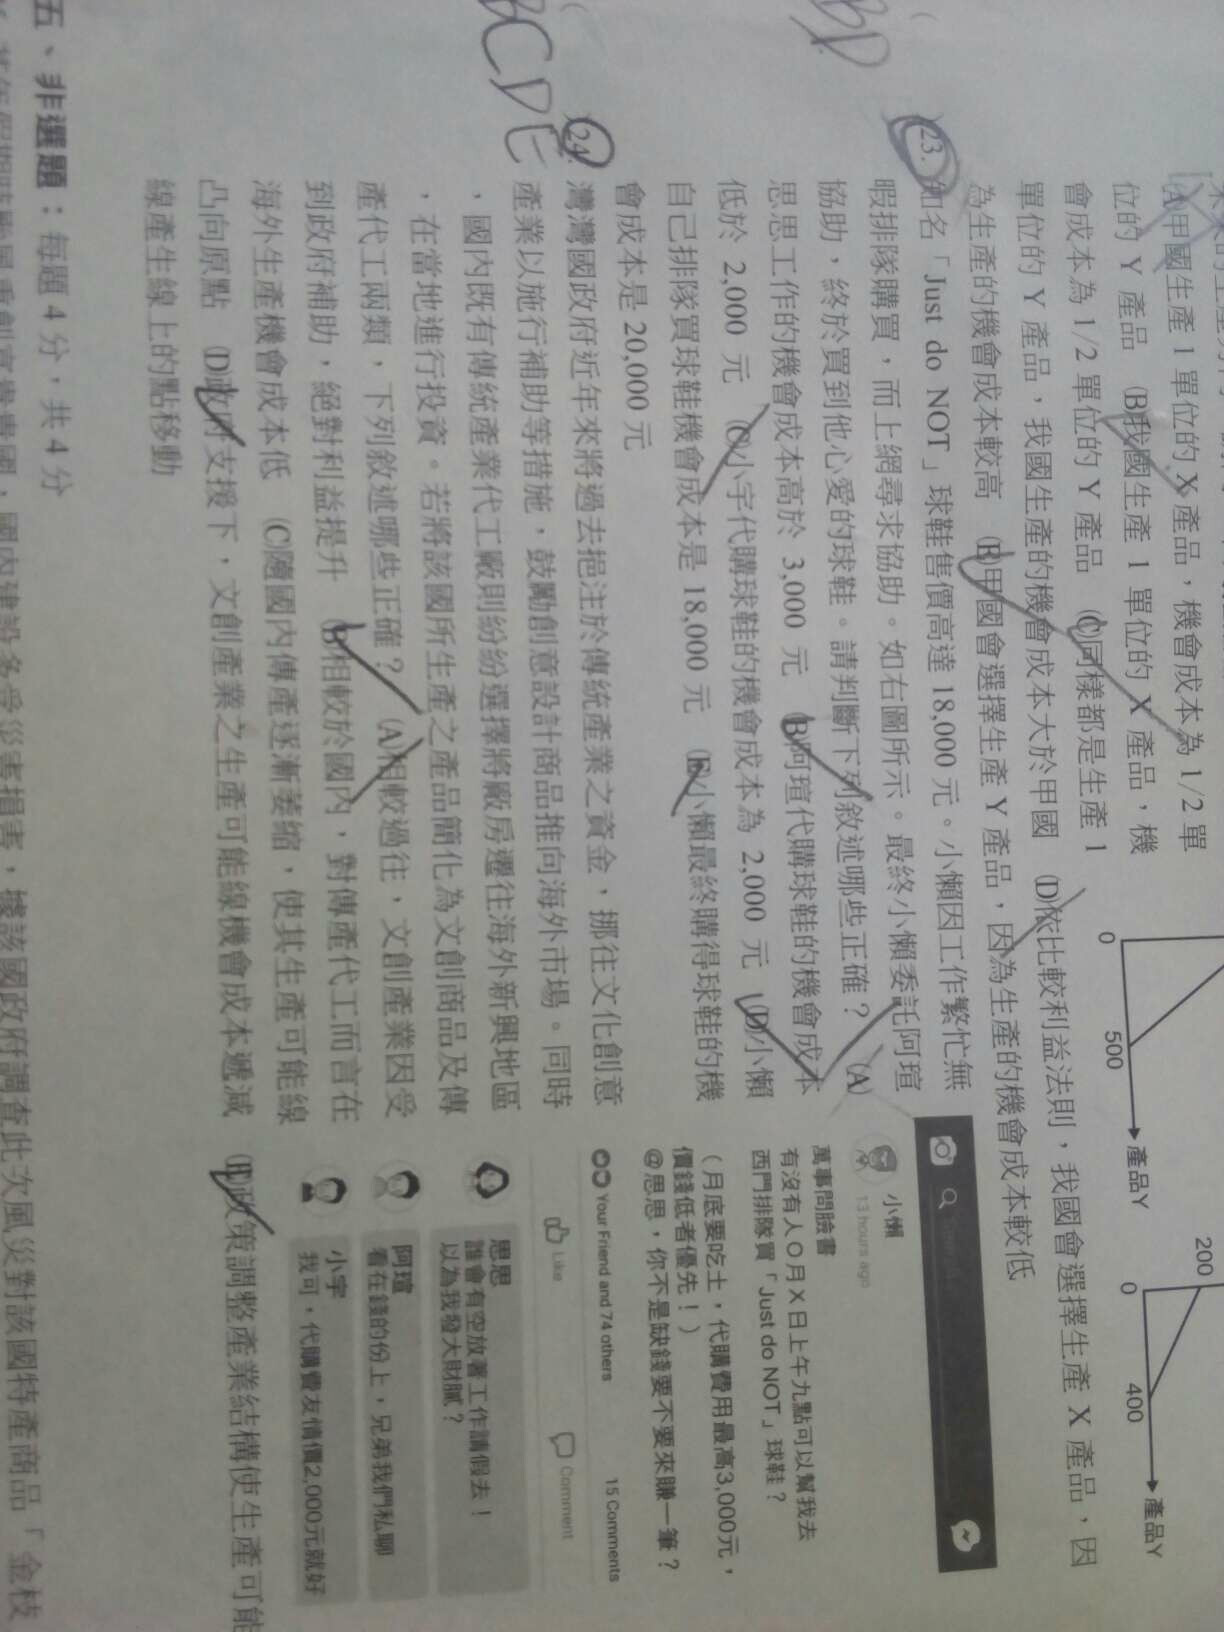 (A)甲國生產 1 單位的 X 產品，機會成本為 1/2 單
位的 Y 產品 (B)我國生產 1 單位的 X 產品，機
會成本為 1/2 單位的 Y 產品 (C)同樣都是生產 1
單位的 Y 產品，我國生產的機會成本大於甲國 (D)依比較利益法則，我國會選擇生產 X 產品，因
為生產的機會成本較高 (E)甲國會選擇生產 Y 產品，因為生產的機會成本較低
0
500
產品Y
200
0
400
產品Y
BD
23. 知名「Just do NOT」球鞋售價高達 18,000 元。小懶因工作繁忙無
暇排隊購買，而上網尋求協助。如右圖所示。最終小懶委託阿瑄
協助，終於買到他心愛的球鞋。請判斷下列敘述哪些正確？ (A)
思思工作的機會成本高於 3,000 元 (B)阿瑄代購球鞋的機會成本
低於 2,000 元 (C)小宇代購球鞋的機會成本為 2,000 元 (D)小懶
自己排隊買球鞋機會成本是 18,000 元 (E)小懶最終購得球鞋的機
會成本是 20,000 元
小懶
13 hours ago
萬事問臉書
有沒有人O月X日上午九點可以幫我去
西門排隊買「Just do NOT」球鞋？
（月底要吃土，代購費用最高3,000元，
價錢低者優先！）
@思思，你不是缺錢要不要來賺一筆？
Your Friend and 74 others
15 Comments
Like
Comment
思思
誰會有空放著工作請假去！
以為我發大財膩？
阿瑄
看在錢的份上，兄弟我們私聊
小宇
我可，代購費友情價2,000元就好
BCDE
24. 灣灣國政府近年來將過去挹注於傳統產業之資金，挪往文化創意
產業以施行補助等措施，鼓勵創意設計商品推向海外市場。同時
，國內既有傳統產業代工廠則紛紛選擇將廠房遷往海外新興地區
，在當地進行投資。若將該國所生產之產品簡化為文創商品及傳
產代工兩類，下列敘述哪些正確？ (A)相較過往，文創產業因受
到政府補助，絕對利益提升 (B)相較於國內，對傳產代工而言在
海外生產機會成本低 (C)隨國內傳產逐漸萎縮，使其生產可能線
凸向原點 (D)政府支援下，文創產業之生產可能線機會成本遞減 (E)政策調整產業結構使生產可能
線產生線上的點移動
五、非選題：每題 4 分，共 4 分
國內建設多受災害損害，據該國政府調查此次風災對該國特產商品「金枝